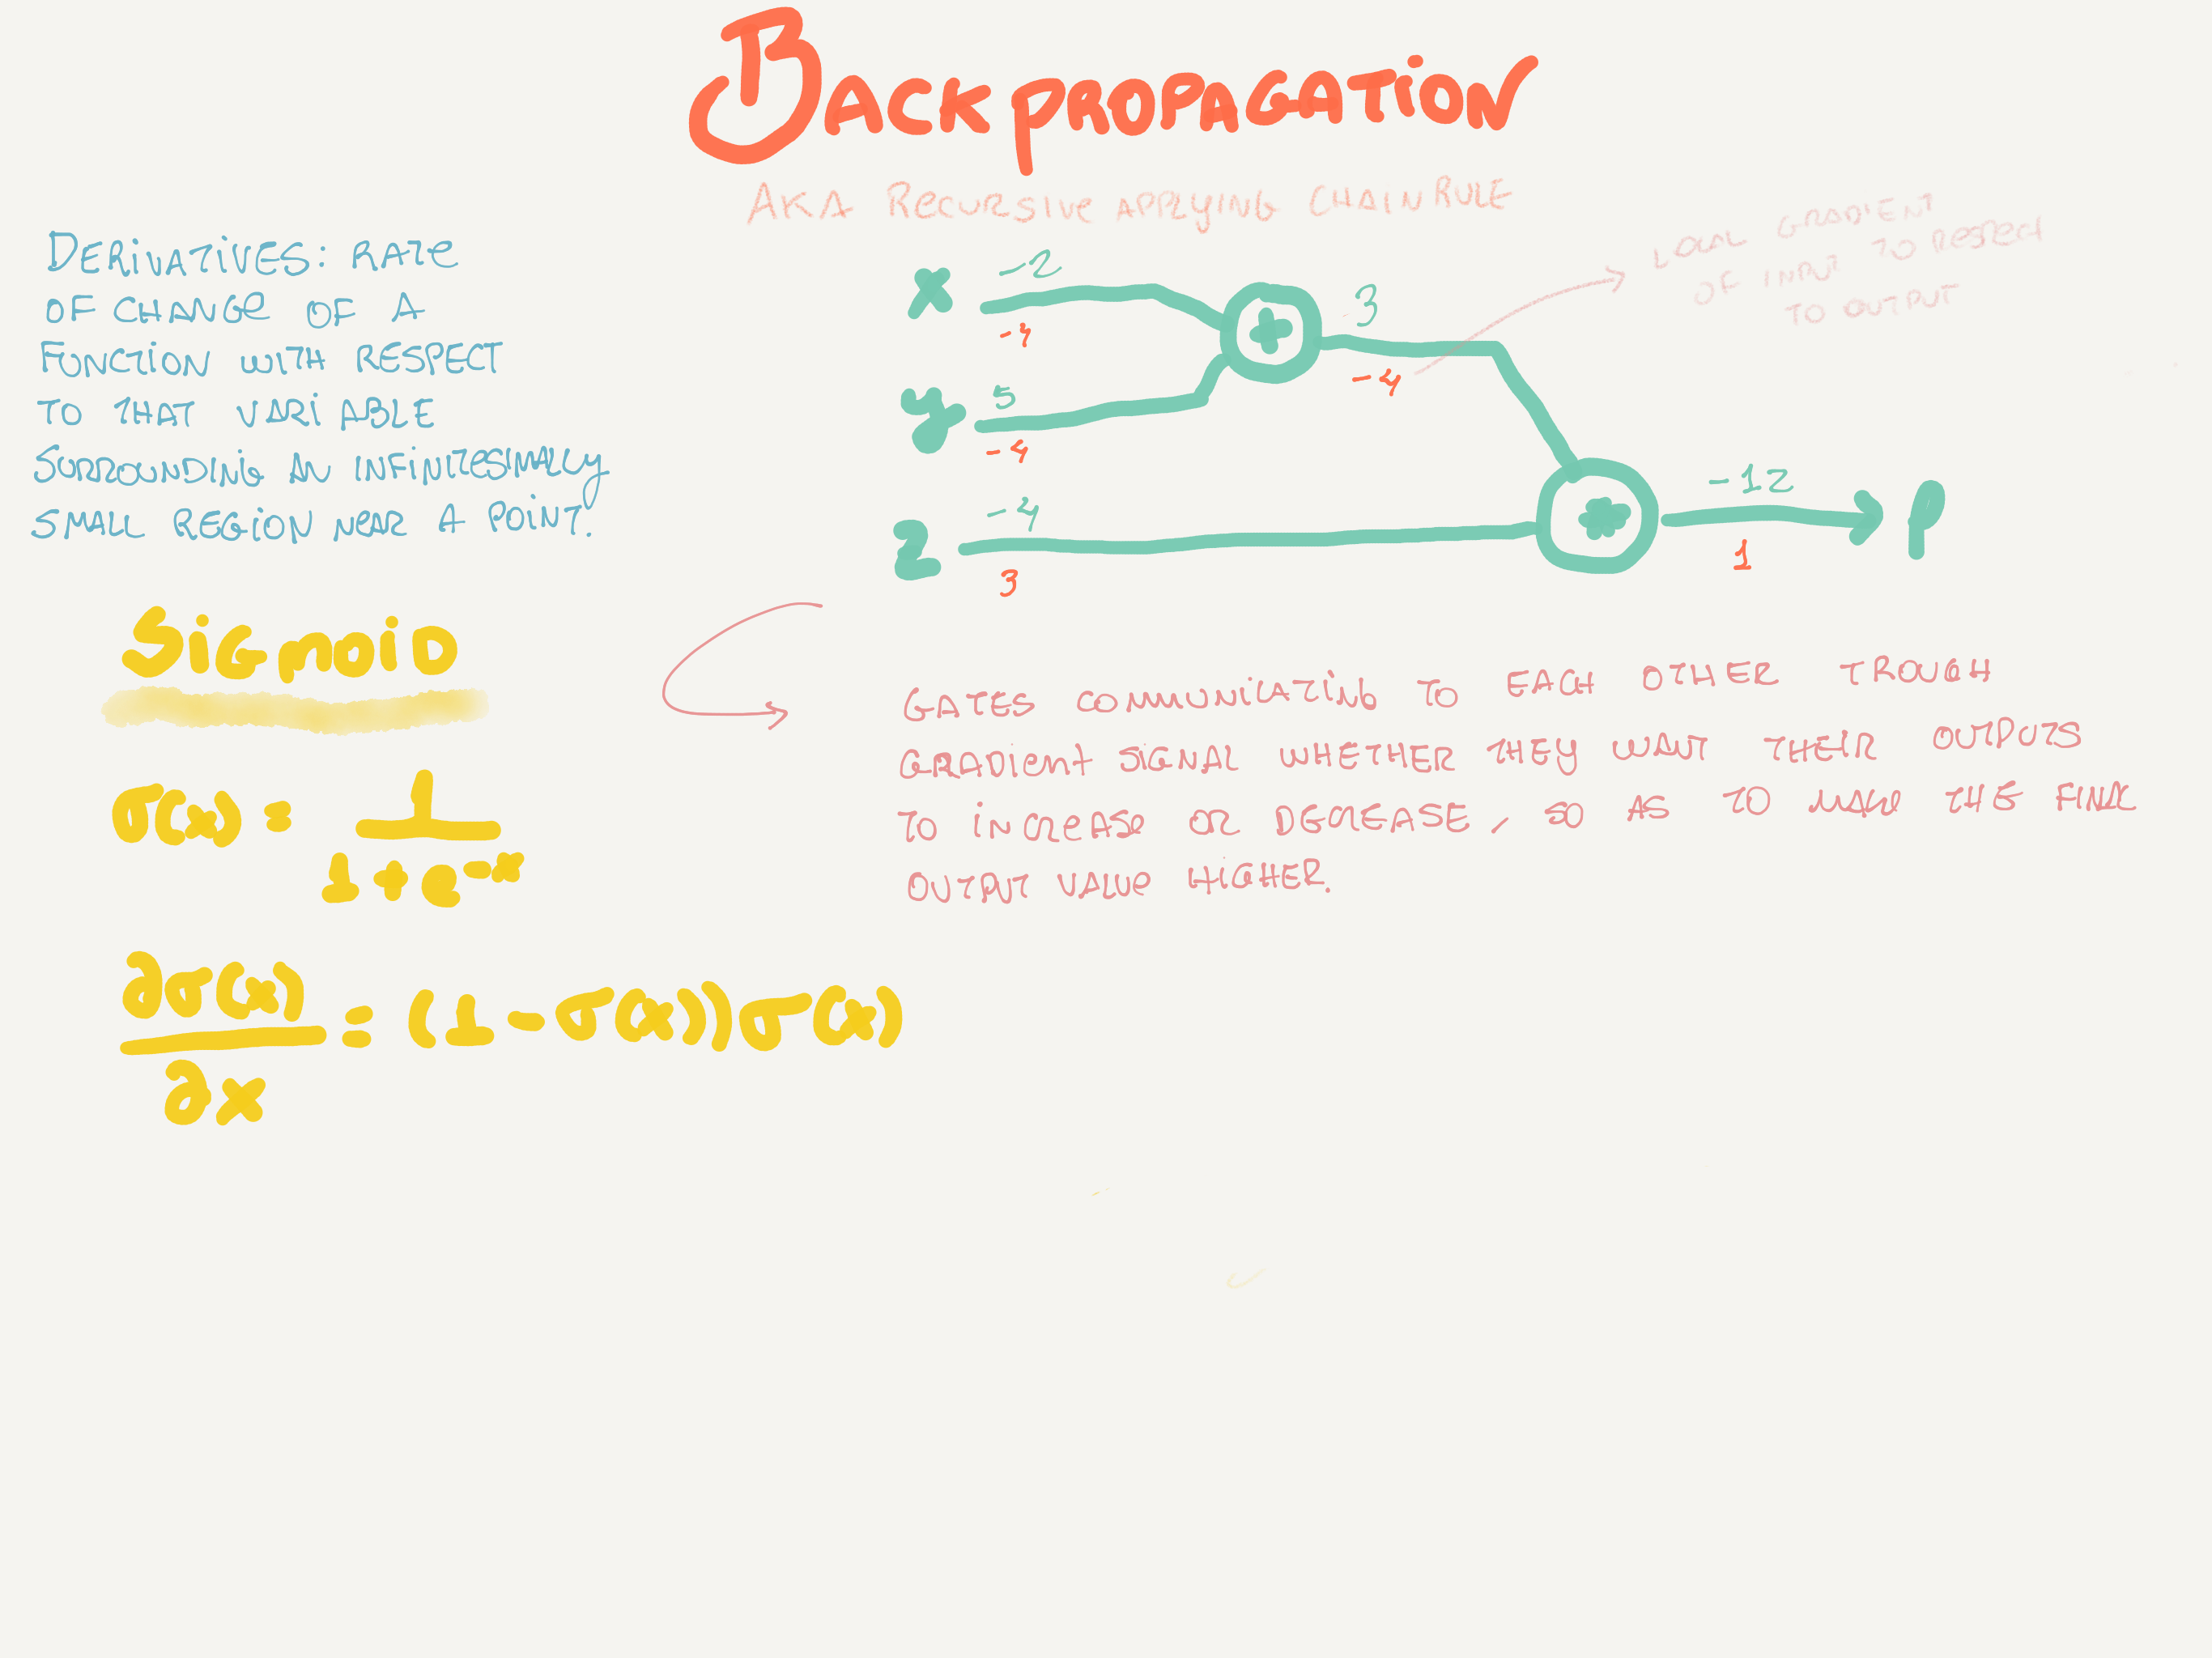 BACKPROPAGATION
AKA RECURSIVE APPLYING CHAIN RULE
DERIVATIVES: RATE
OF CHANGE OF A
FUNCTION WITH RESPECT
TO THAT VARIABLE
SURROUNDING AN INFINITESIMALLY
SMALL REGION NEAR A POINT.
x -2
-4
y 5
-4
z -4
3
+
3
-4
LOCAL GRADIENT
OF INPUT TO RESPECT
TO OUTPUT
*
-12
1
f
GATES COMMUNICATING TO EACH OTHER TROUGH
GRADIENT SIGNAL WHETHER THEY WANT THEIR OUTPUTS
TO INCREASE OR DECREASE, SO AS TO MAKE THE FINAL
OUTPUT VALUE HIGHER.
SIGMOID
σ(x) = 1
1+e^-x
∂σ(x)
= (1-σ(x))σ(x)
∂x